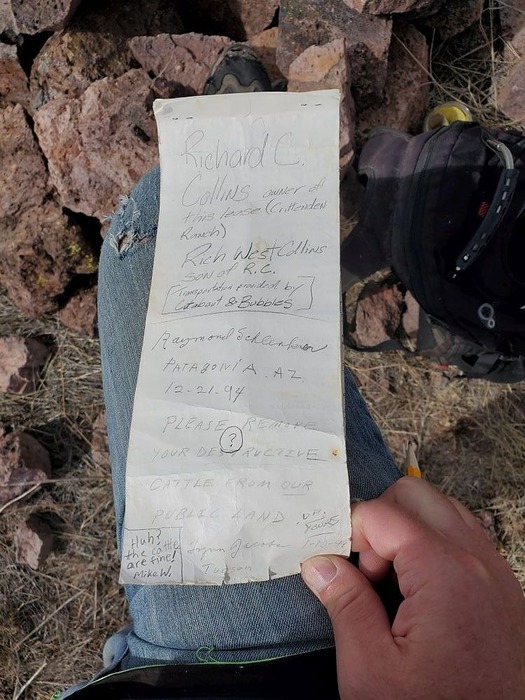 Richard C.
Collins owner of
this lease (Crittenden
Ranch)
Rich West Collins
son of R.C.
[Transportation provided by
Catabout & Bubbles]
Raymond
PATAGONIA, AZ
12-21-94
PLEASE REMOVE
?
YOUR DESTRUCTIVE
CATTLE FROM OUR
PUBLIC LAND
Huh?
the cattle
are fine!
Mike W.
Lynn Jacobs
Tucson